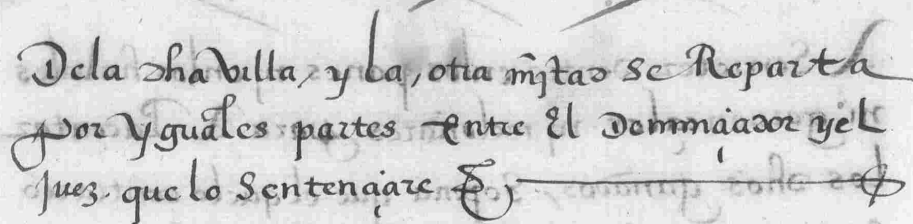 Dela dha villa, y la, otra mitad se Reparta
por yguales partes entre El Denunçiador y el
juez. que lo Sentençiare